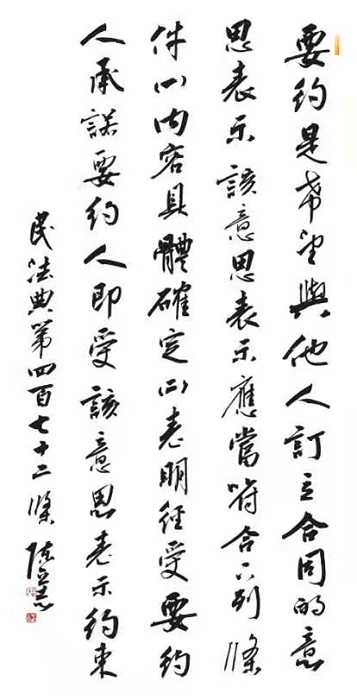 要约是希望與他人訂立合同的意
思表示該意思表示應當符合下列條
件(一)内容具體確定(二)表明經受要约
人承諾要约人即受該意思表示约束
民法典第四百七十二條